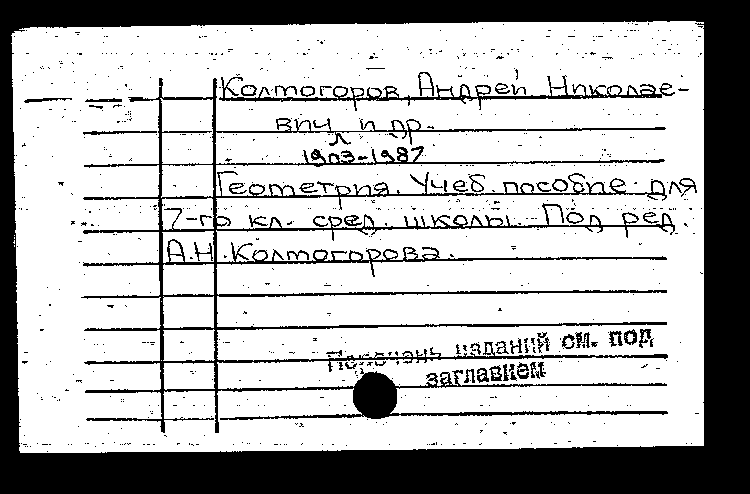 Колмогоров, Андрей Николае-
вич и др.
1903-1987
Геометрия. Учеб. пособие для
7-го кл. сред. школы. Под ред.
А.Н. Колмогорова.
Перечень изданий см. под
заглавием